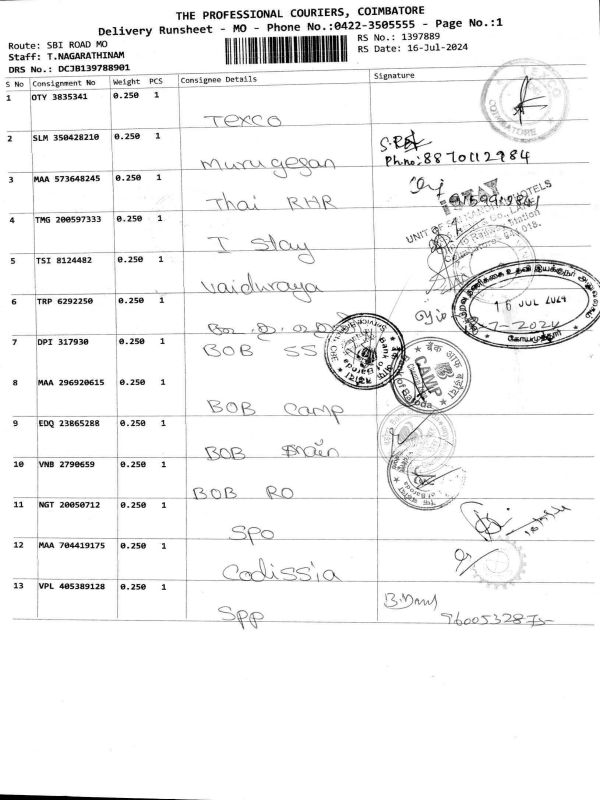 THE PROFESSIONAL COURIERS, COIMBATORE
Delivery Runsheet - MO - Phone No.:0422-3505555 - Page No.:1
Route: SBI ROAD MO
RS No.: 1397889
Staff: T.NAGARATHINAM
RS Date: 16-Jul-2024
DRS No.: DCJB139788901
S No Consignment No Weight PCS Consignee Details Signature
1 OTY 3835341 0.250 1
Texco
TEXCO
COIMBATORE
2 SLM 350428210 0.250 1
Murugesan
Ph.no: 8870112984
3 MAA 573648245 0.250 1
Thai RHR
4 TMG 200597333 0.250 1
I Stay
5 TSI 8124482 0.250 1
Vaiduraya
6 TRP 6292250 0.250 1
16 JUL 2024
கோயமுத்தூர்
7 DPI 317930 0.250 1
BOB SS
Bank of Baroda
8 MAA 296920615 0.250 1
BOB Camp
बैंक ऑफ बड़ौदा
CAMP
Bank of Baroda
9 EDQ 23865288 0.250 1
BOB
10 VNB 2790659 0.250 1
BOB RO
11 NGT 20050712 0.250 1
SPO
12 MAA 704419175 0.250 1
Codissia
13 VPL 405389128 0.250 1
Spp